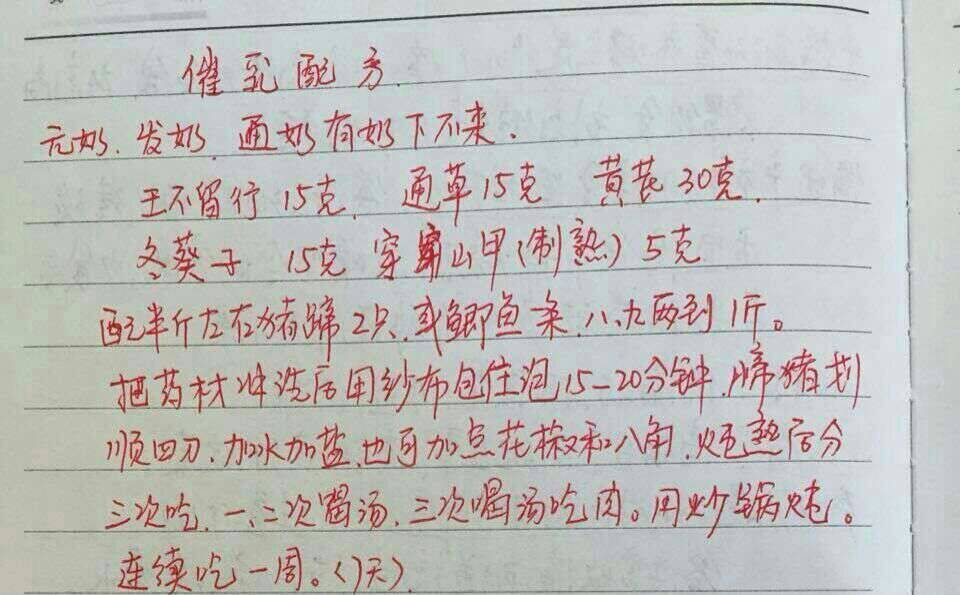 催乳配方.
无奶.发奶.通奶有奶下不来.
王不留行15克. 通草15克 黄芪30克.
冬葵子 15克 穿山甲(制熟)5克
配半斤左右猪蹄2只.或鲫鱼条.八、九两到1斤。
把药材冲洗后用纱布包住泡15-20分钟.蹄猪划
顺四刀.加水加盐.也可加点花椒和八角.炖熟后分
三次吃.一、二次喝汤.三次喝汤吃肉。用炒锅炖。
连续吃一周。(7天).